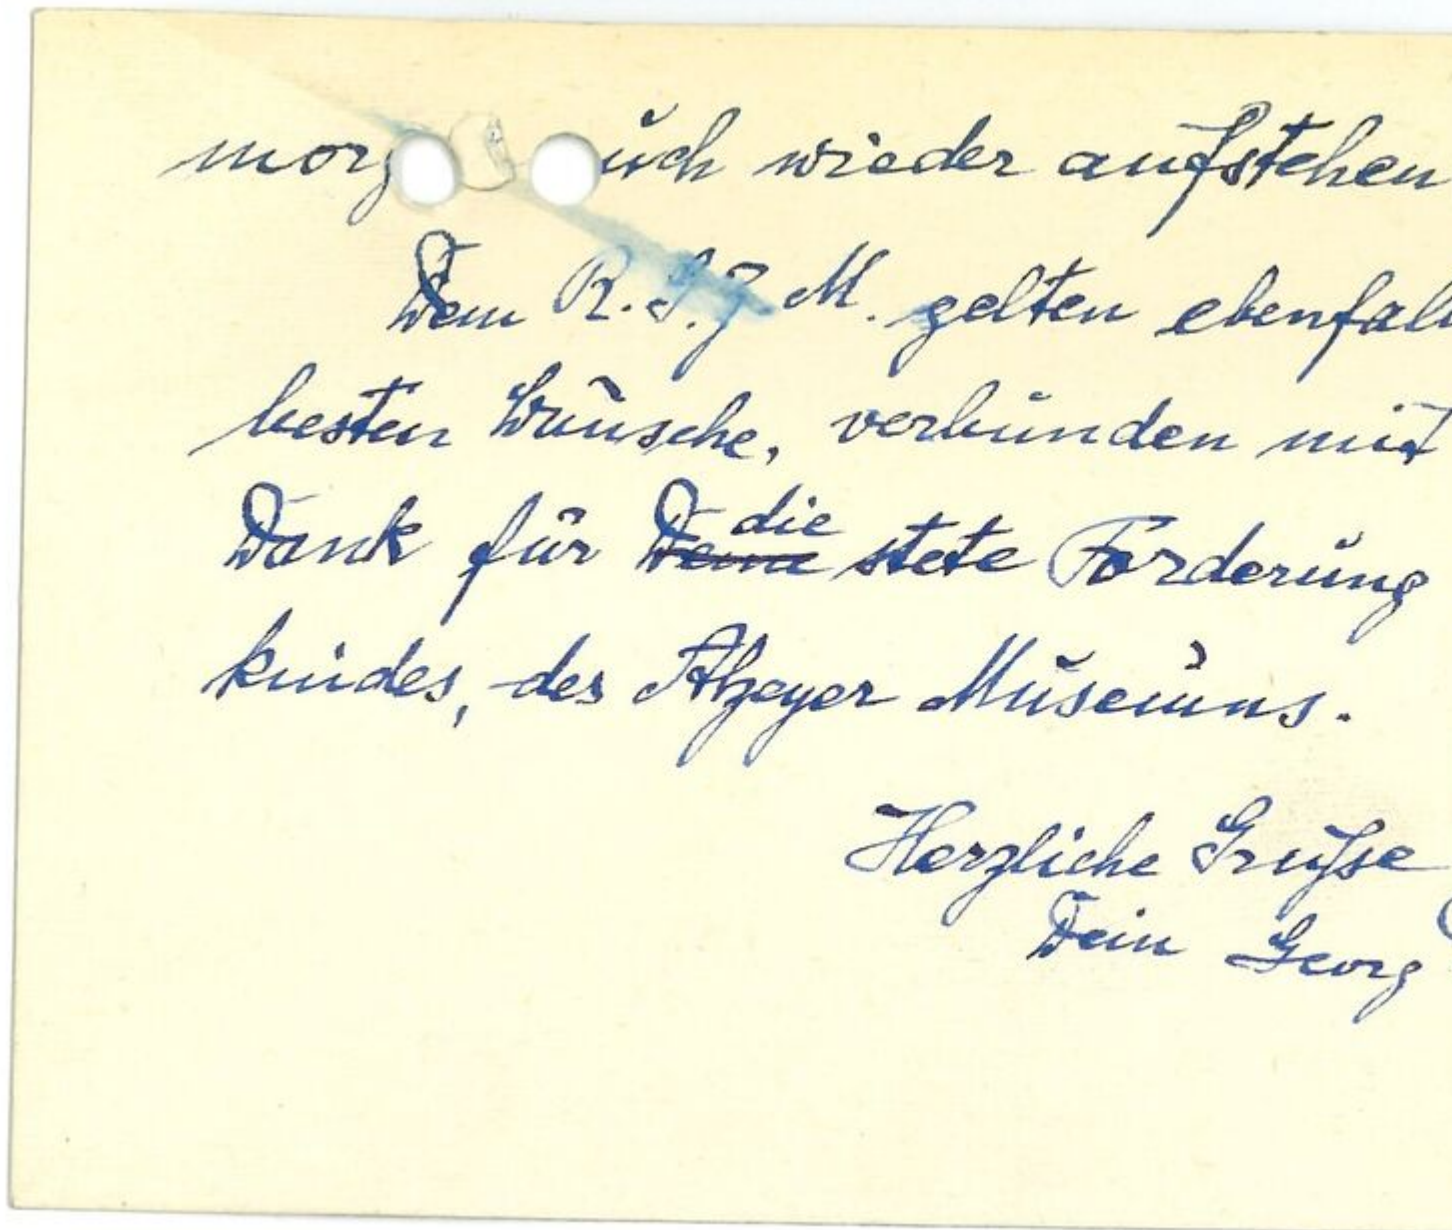 morg uch wieder aufstehen
Dem R.G.Z.M. gelten ebenfall
besten Wünsche, verbunden mit
Dank für die stete Förderung
kindes, des Alzeyer Museums.
Herzliche Grüße
Dein Georg